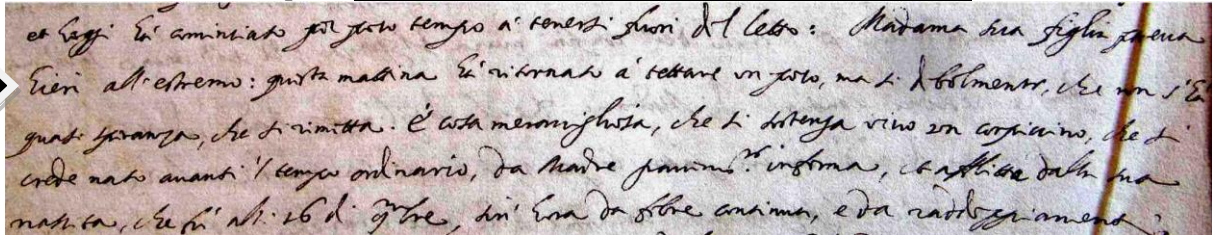 et hoggi hà cominciato per poco tempo à tenersi fuori del letto: Madama sua figlia pareva
hieri all'estremo: questa mattina hà ritornato à tettare un poco, ma sì debolmente, che non s'hà
quasi speranza, che si rimetta. È cosa meravigliosa, che si sostenga vivo un corpicino, che si
crede nato avanti 'l tempo ordinario, da Madre parim.te inferma, et afflitta dalla sua
nascita, che fù alli 26 di 9mbre, sin' hora da febre continua, e da raddoppiamenti